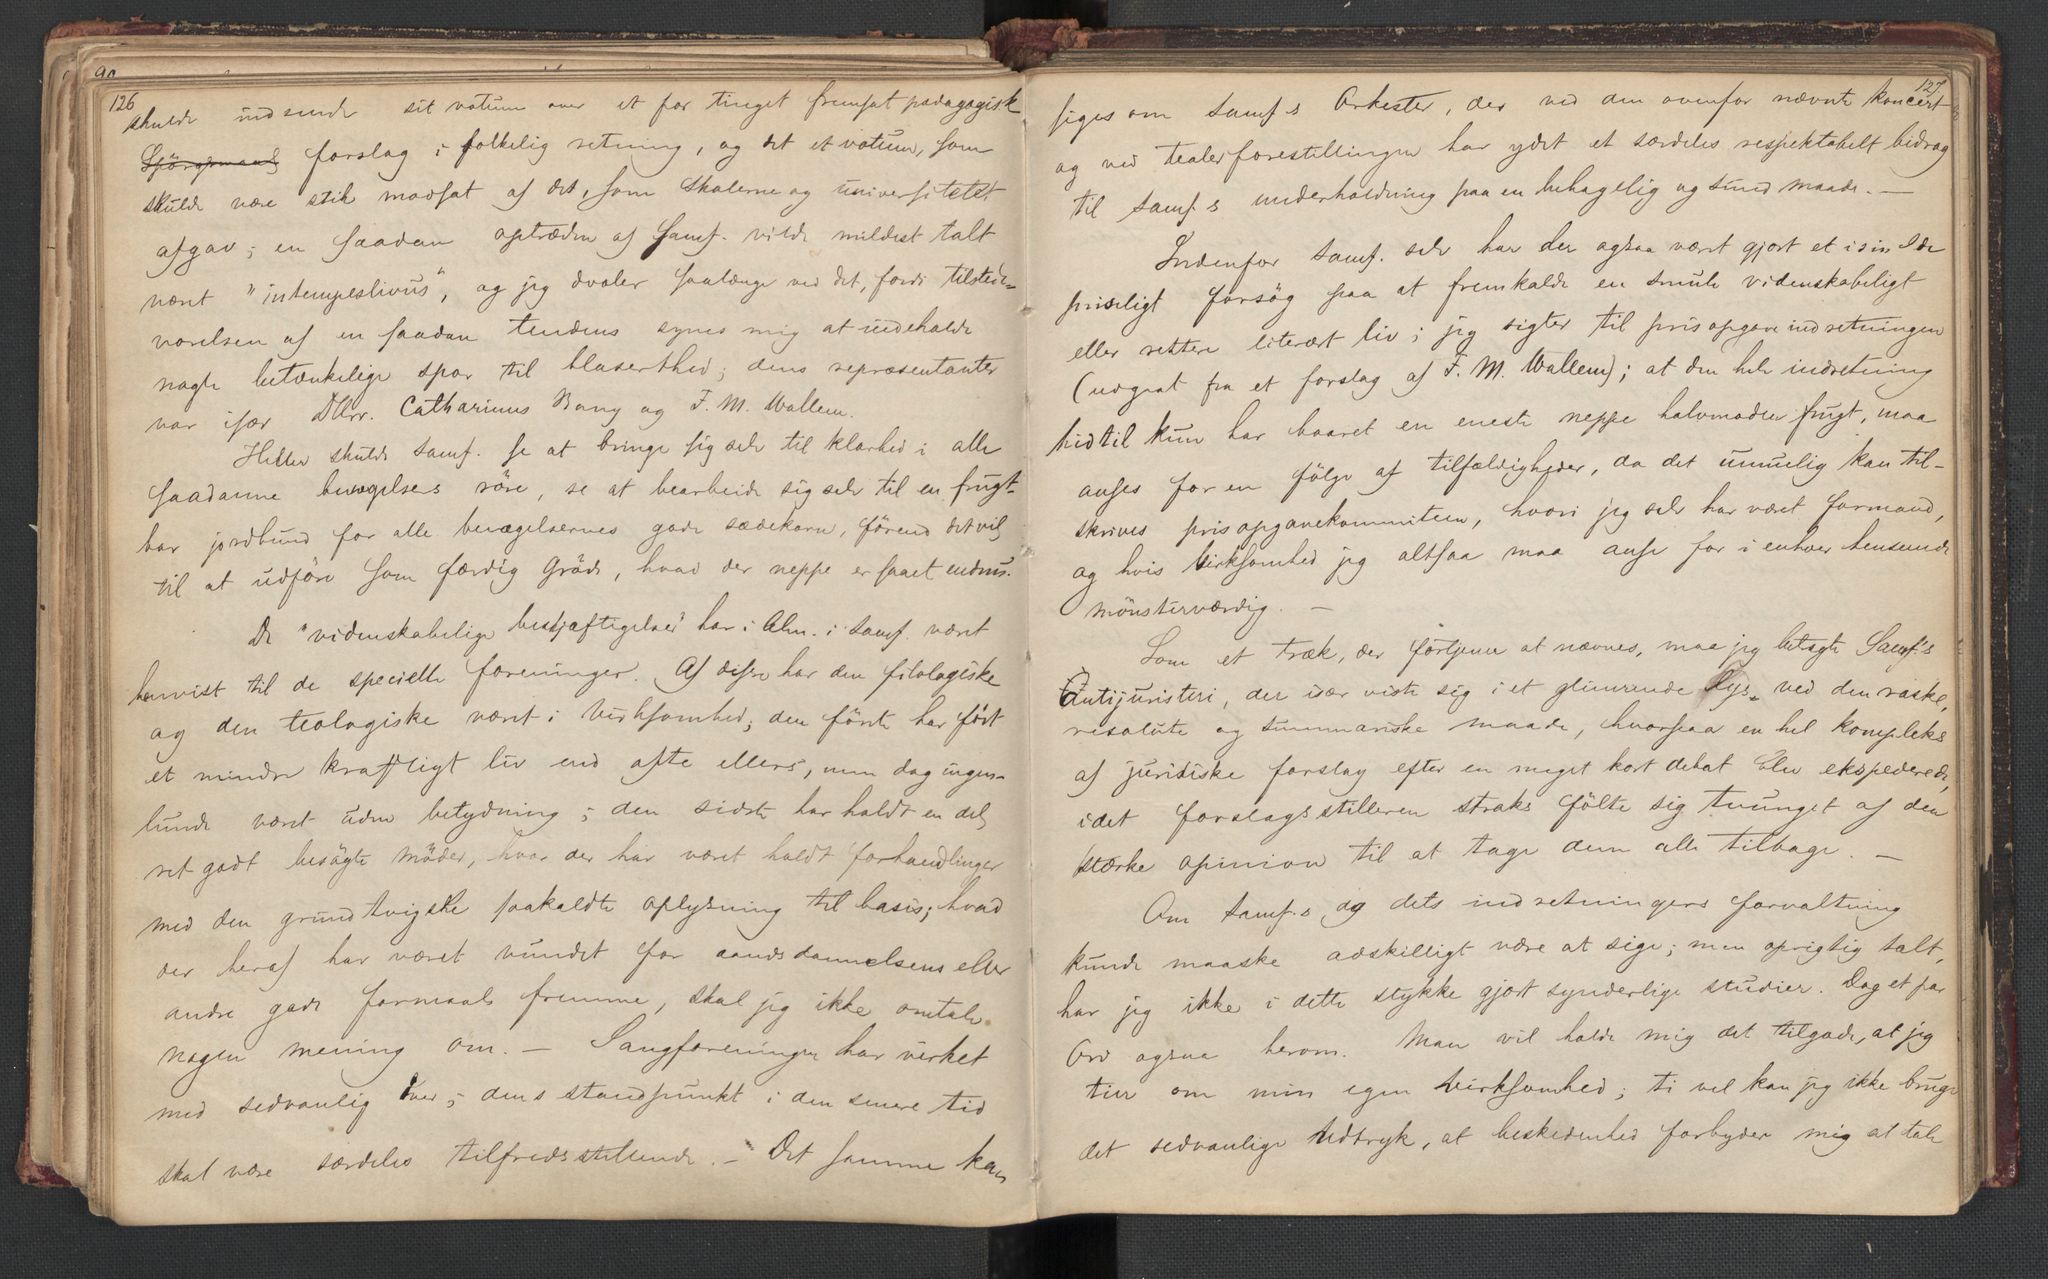 126
skulde indsende sit votum over et for tinget fremsat pædagogisk
Spörgsmaal forslag i folkelig retning, og det et votum, som
skulde være stik modsat af det, som skolerne og universitetet
afgav; en saadan optræden af Samf. vilde mildest talt
været "intempestivus", og jeg dvæler saalænge ved det, fordi tilstede-
værelsen af en saadan tendens synes mig at indeholde
nogle betænkelige spor til blaserthed; dens repræsentanter
var især DHrr. Catharinus Bang og F. M. Wallem.
Heller skulde Samf. se at bringe sig selv til klarhed i alle
saadanne bevægelses röre, se at bearbeide sig selv til en frugt-
bar jordbund for alle bevægelsernes gode sædekorn, förend det vil
til at udföre som færdig Gröde, hvad der neppe er saaet endnu.
De "videnskabelige beskjæftigelser" har i Alm. i Samf. været
henvist til de specielle foreninger. Af disse har den filologiske
og den teologiske været i Virksomhed; den förste har fört
et mindre kraftigt liv end ofte ellers, men dog ingen-
lunde været uden betydning; den sidste har holdt en del
ret godt besögte Möder, hvor der har været holdt forhandlinger
med den grundtvigske saakaldte oplysning til basis; hvad
der heraf har været vundet for aandsdannelsens eller
andre gode formaals fremme, skal jeg ikke omtale
nogen mening om. — Sangforeningen har virket
med sedvanlig Iver; dens standpunkt i den senere tid
skal være særdeles tilfredsstillende. — Det samme kan
127
siges om Samf.s Orkester, der ved den ovenfor nævnte koncert
og ved teaterforestillingen har ydet et særdeles respektabelt bidrag
til Samf.s underholdning paa en behagelig og sund maade. —
Indenfor Samf. selv har der ogsaa været gjort et i sin Ide
priseligt forsög paa at fremkalde en smule videnskabeligt
eller rettere literært liv; jeg sigter til prisopgaveindretningen
(udgaat fra et forslag af F. M. Wallem); at den hele indretning
hidtil kun har baaret en eneste neppe halvmoden frugt, maa
anses for en fölge af tilfældigheder, da det umulig kan til-
skrives prisopgavekommiteen, hvori jeg selv har været formand,
og hvis Virksomhed jeg altsaa maa anse for i enhver henseende
mönsterværdig. —
Som et træk, der fortjener at nævnes, maa jeg betegte Samf.'s
Antijuristeri, der især viste sig i et glimrende Lys ved den raske,
resolute og summariske maade, hvorpaa en hel kompleks
af juridiske forslag efter en meget kort debat blev ekspederede,
idet forslagsstilleren straks fölte sig tvunget af den
stærke opinion til at tage dem alle tilbage. —
Om Samf.s og dets indretningers forvaltning
kunde maaske adskilligt være at sige; men oprigtig talt,
har jeg ikke i dette stykke gjort synderlige studier. Dog et par
Ord ogsaa herom. Man vil holde mig det tilgode, at jeg
tier om min egen Virksomhed; ti vel kan jeg ikke bruge
det sedvanlige Udtryk, at beskedenhed forbyder mig at tale